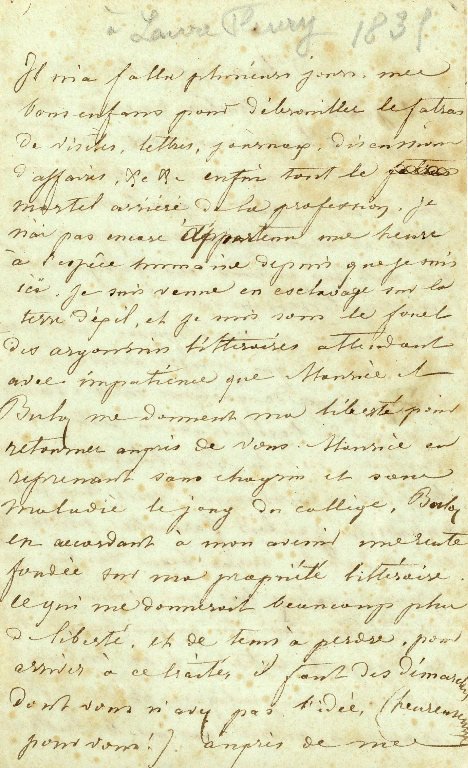 à Laure Fleury 1835
Il m'a fallu plusieurs jours, mes
bons enfans pour débrouiller le fatras
de visites, lettres, journaux, discussions
d'affaires, &c &c enfin tout le
mortel arriéré de la profession, je
n'ai pas encore appartenu une heure
à l'espèce humaine depuis que je suis
ici. je suis venue en esclavage sur la
terre d'exil, et je suis sous le fouet
des argousins littéraires attendant
avec impatience que Maurice et
Buloz me donnent ma liberté pour
retourner auprès de vous. Maurice en
reprenant sans chagrin et sans
maladie le joug du collège, Buloz
en accordant à mon avenir une rente
fondée sur ma propriété littéraire.
ce qui me donneroit beaucoup plus
de liberté, et de tems à perdre, pour
arriver à ce traité, il faut des démarches
dont vous n'avez pas l'idée, (heureusement
pour vous!) auprès de mes